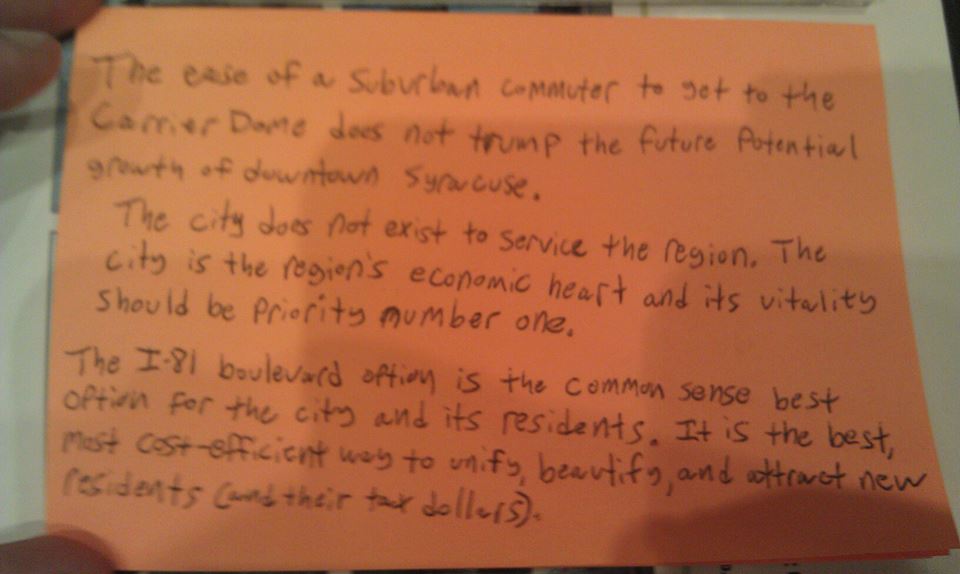 The ease of a suburban commuter to get to the
Carrier Dome does not trump the future potential
growth of downtown Syracuse.
The city does not exist to service the region. The
city is the region's economic heart and its vitality
should be priority number one.
The I-81 boulevard option is the common sense best
option for the city and its residents. It is the best,
most cost-efficient way to unify, beautify, and attract new
residents (and their tax dollars).